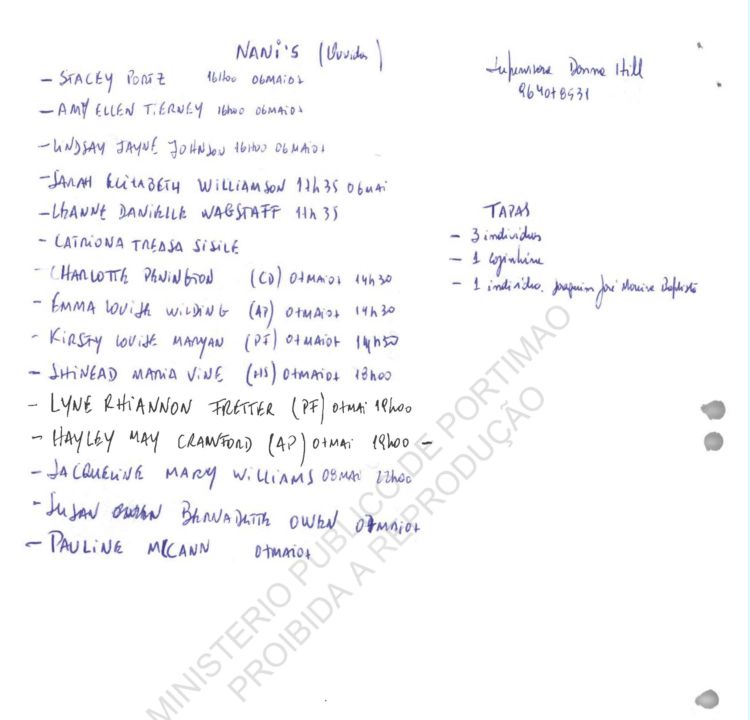 NANi'S (Ouvidas)
— STACEY PORTZ 16h00 06MAiO7
— AMY ELLEN TiERNEY 16h00 06MAiO7
— LiNDSAY JAYNE JOHNSON 16h00 06MAiO7
— SARAH ELiZABETH WiLLiAMSON 11h35 06MAi
— LEANNE DANiELLE WAGSTAFF 11h35
— CATRiONA TREASA SiSiLE
— CHARLOTTE PENiNGTON (CD) 07MAiO7 14h30
— EMMA LOUiSE WiLDiNG (AP) 07MAiO7 14h30
— KiRSTY LOUiSE MARYAN (PF) 07MAiO7 14h50
— SHiNEAD MARiA ViNE (HS) 07MAiO7 18h00
— LYNE RHiANNON FRETTER (PF) 07MAi 19h00
— HAYLEY MAY CRAWFORD (AP) 07MAi 19h00 —
— JACQUELiNE MARY WiLLiAMS 08MAi 22h00
— SUSAN BERNADETTE OWEN 07MAiO7
— PAULiNE McCANN 07MAiO7
Supervisora Donna Hill
964078531
TAPAS
— 3 individuos
— 1 cozinheiro
— 1 individuo. Joaquim José Baptista
MINISTERIO PUBLICO DE PORTIMAO
PROIBIDA A REPRODUÇÃO